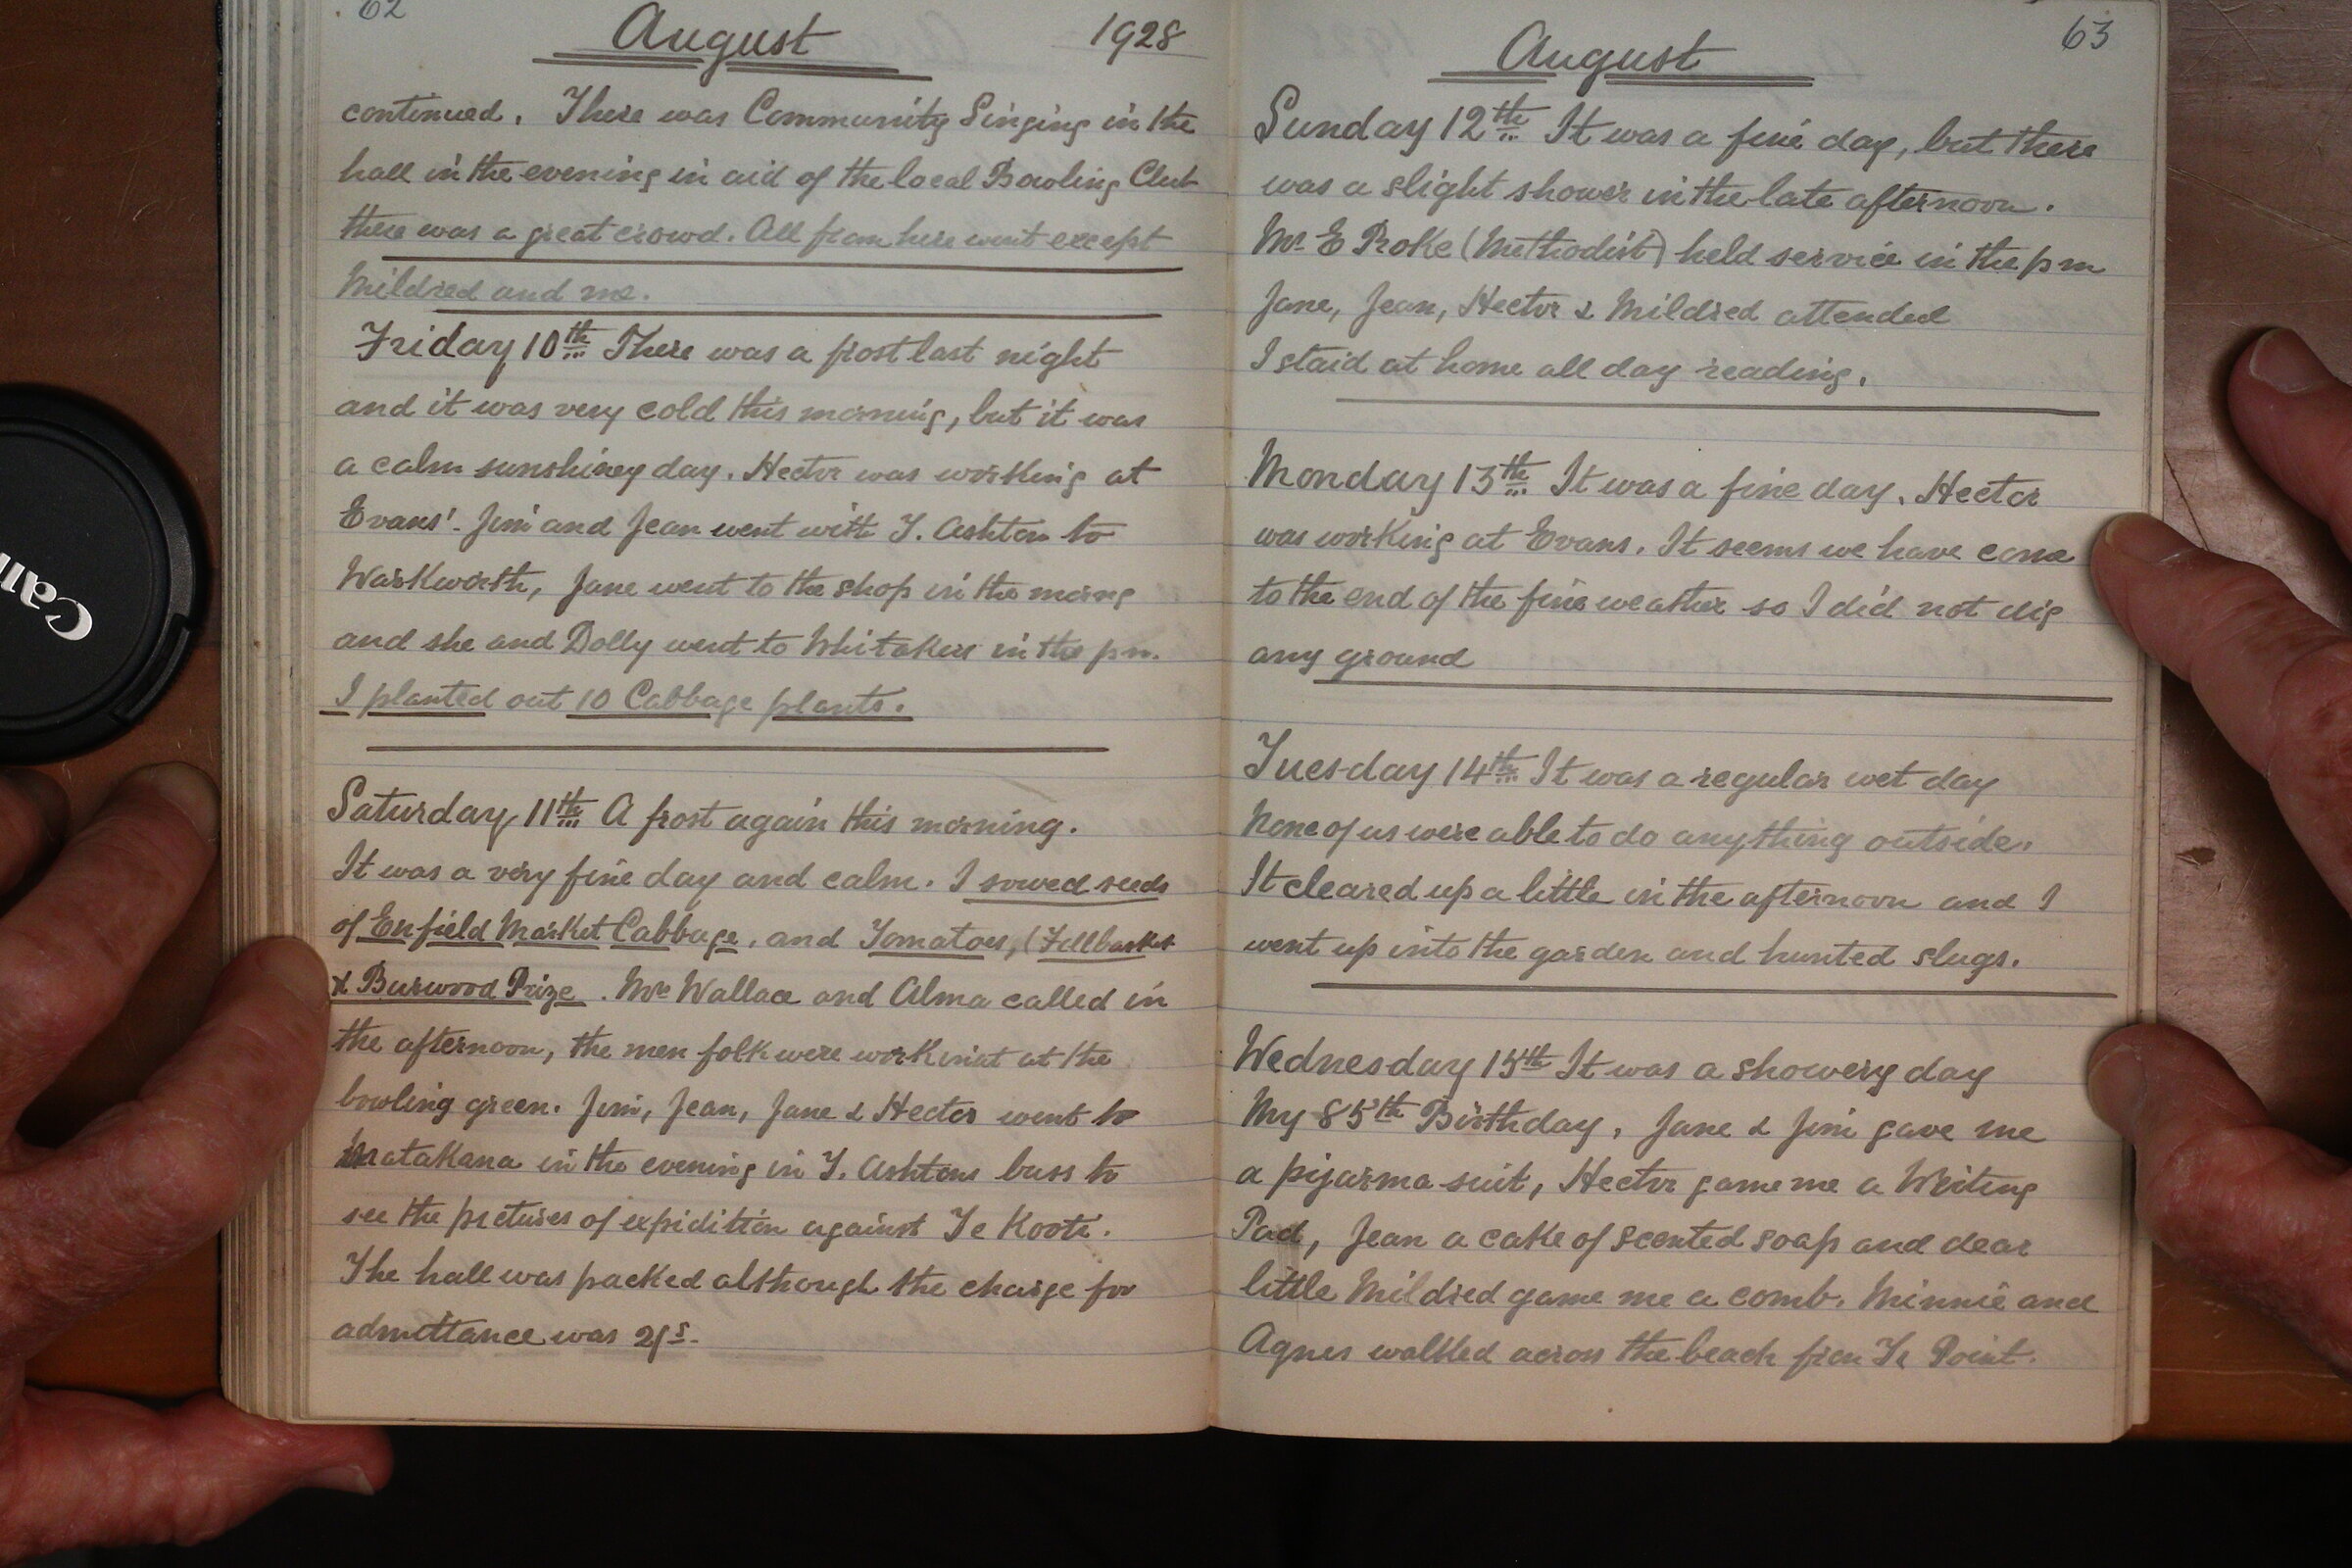 62
August 1928
continued. There was Community Singing in the
hall in the evening in aid of the local Bowling Club
there was a great crowd. All from here went except
Mildred and me.
Friday 10th There was a frost last night
and it was very cold this morning, but it was
a calm sunshiney day. Hector was working at
Evans'. Jim and Jean went with T. Ashton to
Warkworth, Jane went to the shop in the morng
and she and Dolly went to Whitakers in the pm.
I planted out 10 Cabbage plants.
Saturday 11th A frost again this morning.
It was a very fine day and calm. I sowed seeds
of Enfield Market Cabbage, and Tomatoes, (Fillbasket
& Burwood Prize. Mrs Wallace and Alma called in
the afternoon, the men folk were workinat at the
bowling green. Jim, Jean, Jane & Hector went to
Matakana in the evening in T. Ashtons buss to
see the pictures of expidition against Te Kooti.
The hall was packed although the charge for
admittance was 2/s.
63
August
Sunday 12th It was a fine day, but there
was a slight shower in the late afternoon.
Mr E Proke (Methodist) held service in the pm
Jane, Jean, Hector & Mildred attended
I staid at home all day reading.
Monday 13th It was a fine day. Hector
was working at Evans. It seems we have come
to the end of the fine weather so I did not dig
any ground
Tuesday 14th It was a regular wet day
None of us were able to do anything outside.
It cleared up a little in the afternoon and I
went up into the garden and hunted slugs.
Wednesday 15th It was a showery day
My 85th Birthday, Jane & Jim gave me
a pijarma suit, Hector game me a Writing
Pad, Jean a cake of scented soap and dear
little Mildred game me a comb. Minnie and
Agnes walked across the beach from Te Point.
Can